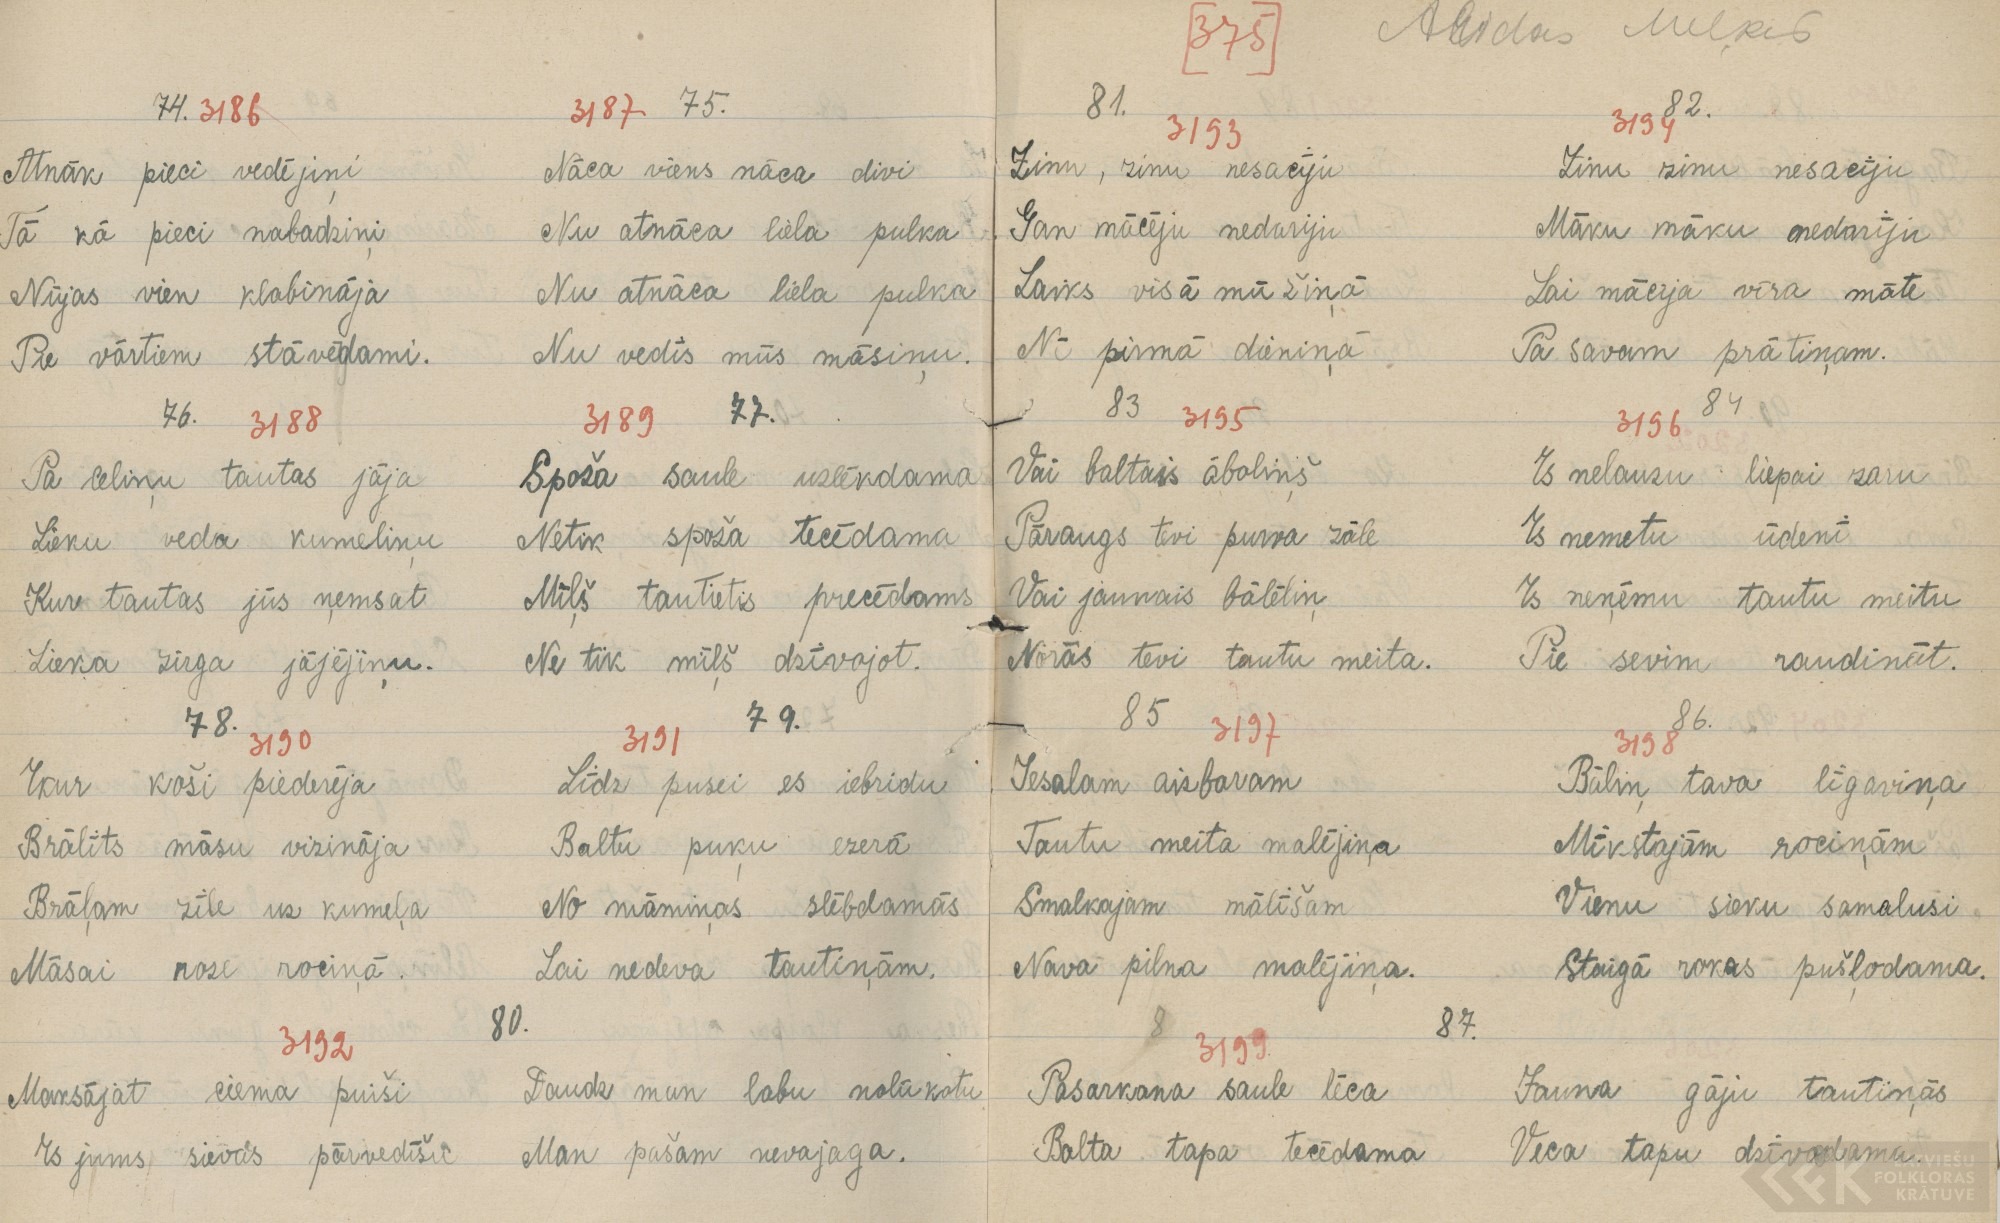 [375] Alidas Meļķis
74. 3186
Atnāk pieci vedējiņi
Tā kā pieci nabadziņi
Nūjas vien klabināja
Pie vārtiem stāvēdami.
3187 75.
Nāca viens nāca divi
Nu atnāca liela pulka
Nu atnāca liela pulka
Nu vedīs mūs māsiņu.
76. 3188
Pa celiņu tautas jāja
Lieku veda kumeliņu
Kur tautas jūs ņemsat
Lieka zirga jājējiņu.
3189 77.
Spoža saule uzlēkdama
Netik spoža tecēdama
Mīļš tautietis precēdams
Ne tik mīļš dzīvojot.
78. 3190
Ikur koši piederēja
Brālīts māsu vizināja
Brāļam zīle uz kumeļa
Māsai roze rociņā.
3191 79.
Līdz pusei es iebridu
Baltu puķu ezerā
No māmiņas slēbdamās
Lai nedeva tautiņām.
3192 80.
Maksājat ciema puiši
Es jums sievās pārvedīšie
Daudz man labu nolūkotu
Man pašam nevajaga.
81. 3193
Zinu, zinu nesacīju
Gan mācēju nedarīju
Laiks visā mūžiņā
Nē pirmā dieniņā
82. 3194
Zinu zinu nesacīju
Māku māku nedarīju
Lai mācīja vīra māte
Pa savam prātiņam.
83 3195
Vai baltais āboliņš
Pāraugs tevi purva zāle
Vai jaunais bālēliņ
Norās tevi tautu meita.
3196 84
Es nelauzu liepai zaru
Es nemetu ūdenī
Es neņēmu tautu meitu
Pie sevim raudināt.
85 3197
Iesalam aizbaram
Tautu meita malējiņa
Smalkajam mālīšam
Nava pilna malējiņa.
3198 86.
Bāliņ tava līgaviņa
Mīkstajām rociņām
Vienu sieku samalusi
Staigā rokas pušļodama.
8 3199 87.
Pasarkana saule lēca
Balta tapa tecēdama
Jauna gāju tautiņās
Veca tapu dzīvodama.
LATVIEŠU
FOLKLORAS
KRĀTUVE